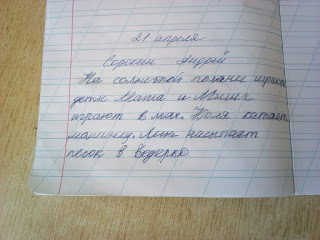 21 апреля
Сорокин Андрей
На солнечной поляне играют
дети Маша и
играют в мяч. Коля катает
машинку. насыпает
песок в ведерко.